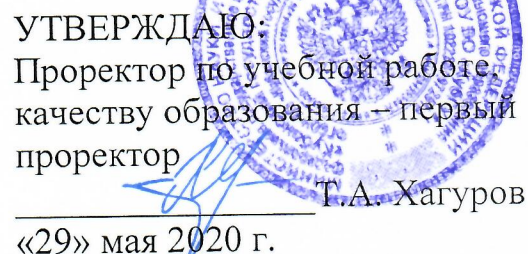 УТВЕРЖДАЮ:
Проректор по учебной работе,
качеству образования – первый
проректор
Т.А. Хагуров
«29» мая 2020 г.